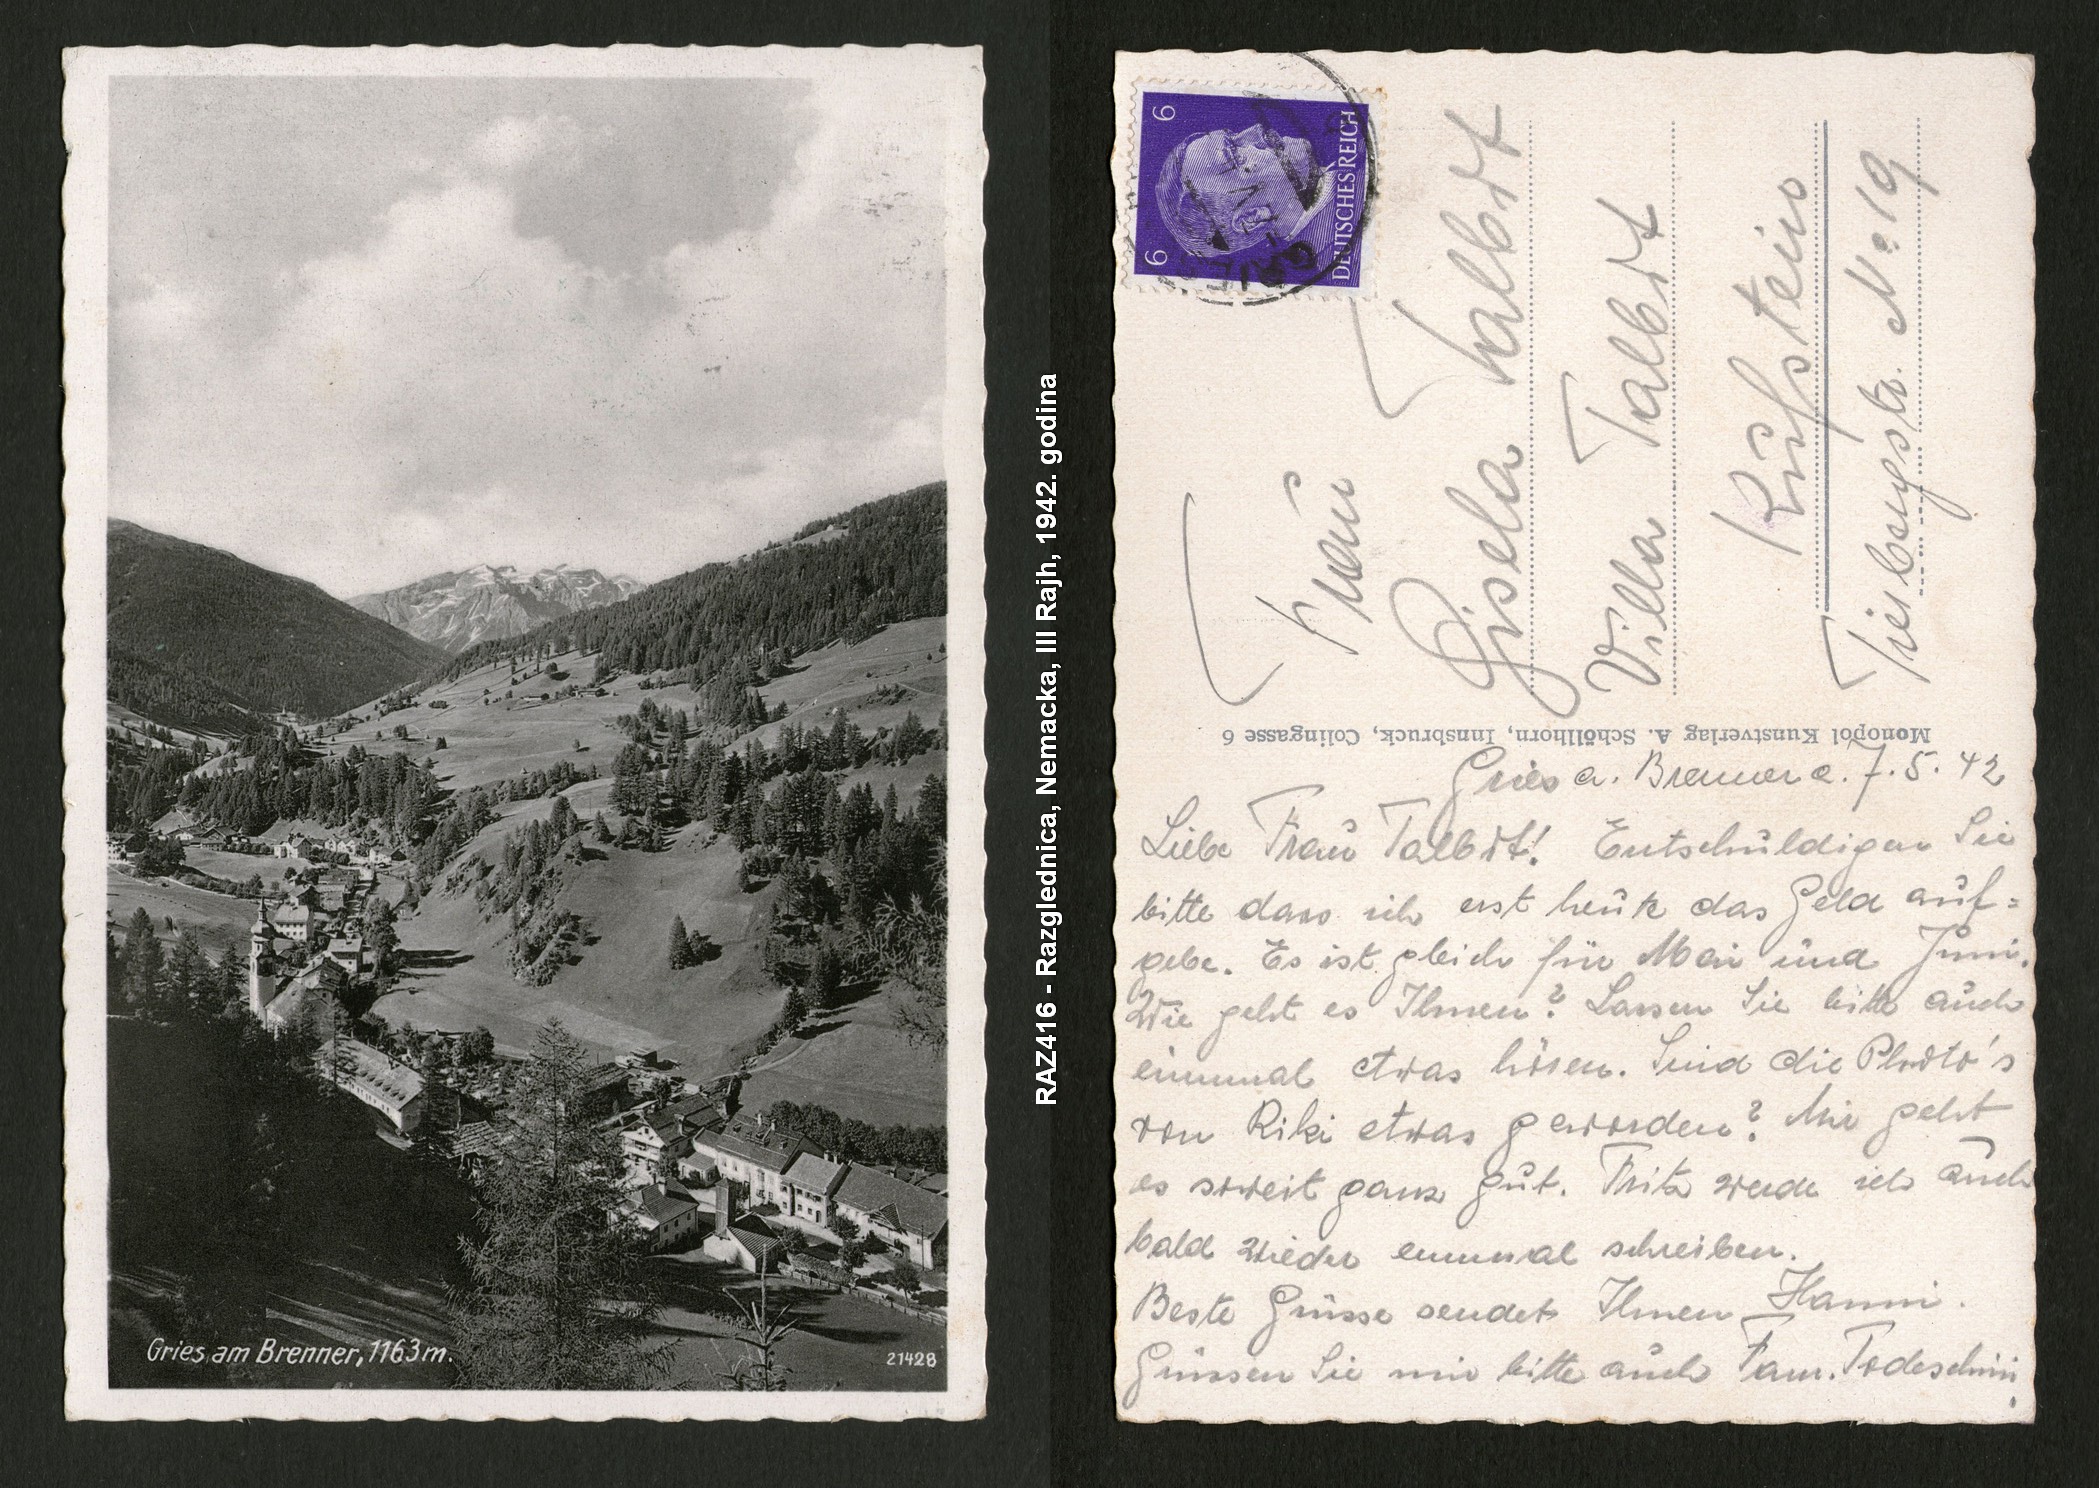 Gries am Brenner, 1163 m.
21428
RAZ416 - Razglednica, Nemacka, III Rajh, 1942. godina
6 6
DEUTSCHES REICH
Frau
Gisela Talbot
Villa Talbot
Kufstein
N: 19
Monopol Kunstverlag A. Schöllhorn, Innsbruck, Colingasse 6
Gries a. Brenner 7.5.42
Liebe Frau Talbot! Entschuldigen Sie
bitte dass ich erst heute das Geld auf=
gebe. Es ist gleich für Mai und Juni.
Wie geht es Ihnen? Lassen Sie bitte auch
einmal etwas hören. Sind die Photo's
von Riki etwas geworden? Mir geht
es soweit ganz gut. Fritz werde ich auch
bald wieder einmal schreiben.
Beste Grüsse sendet Ihnen Hanni.
Grüssen Sie mir bitte auch Fam. Todeschini.